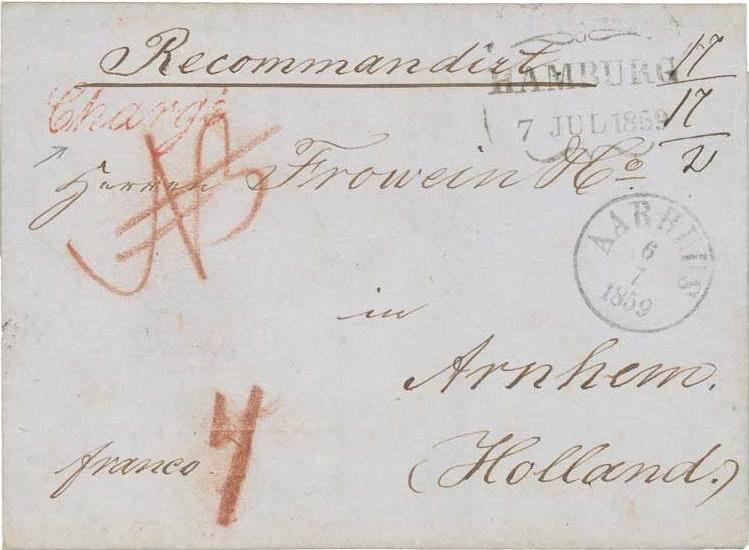 Recommandirt
HAMBURG
7 JUL 1859
17
17
2
Chargé
NB
Herren Frowein & Co.
AARHUUS
6
7
1859
in
Arnhem.
franco
4
(Holland.)